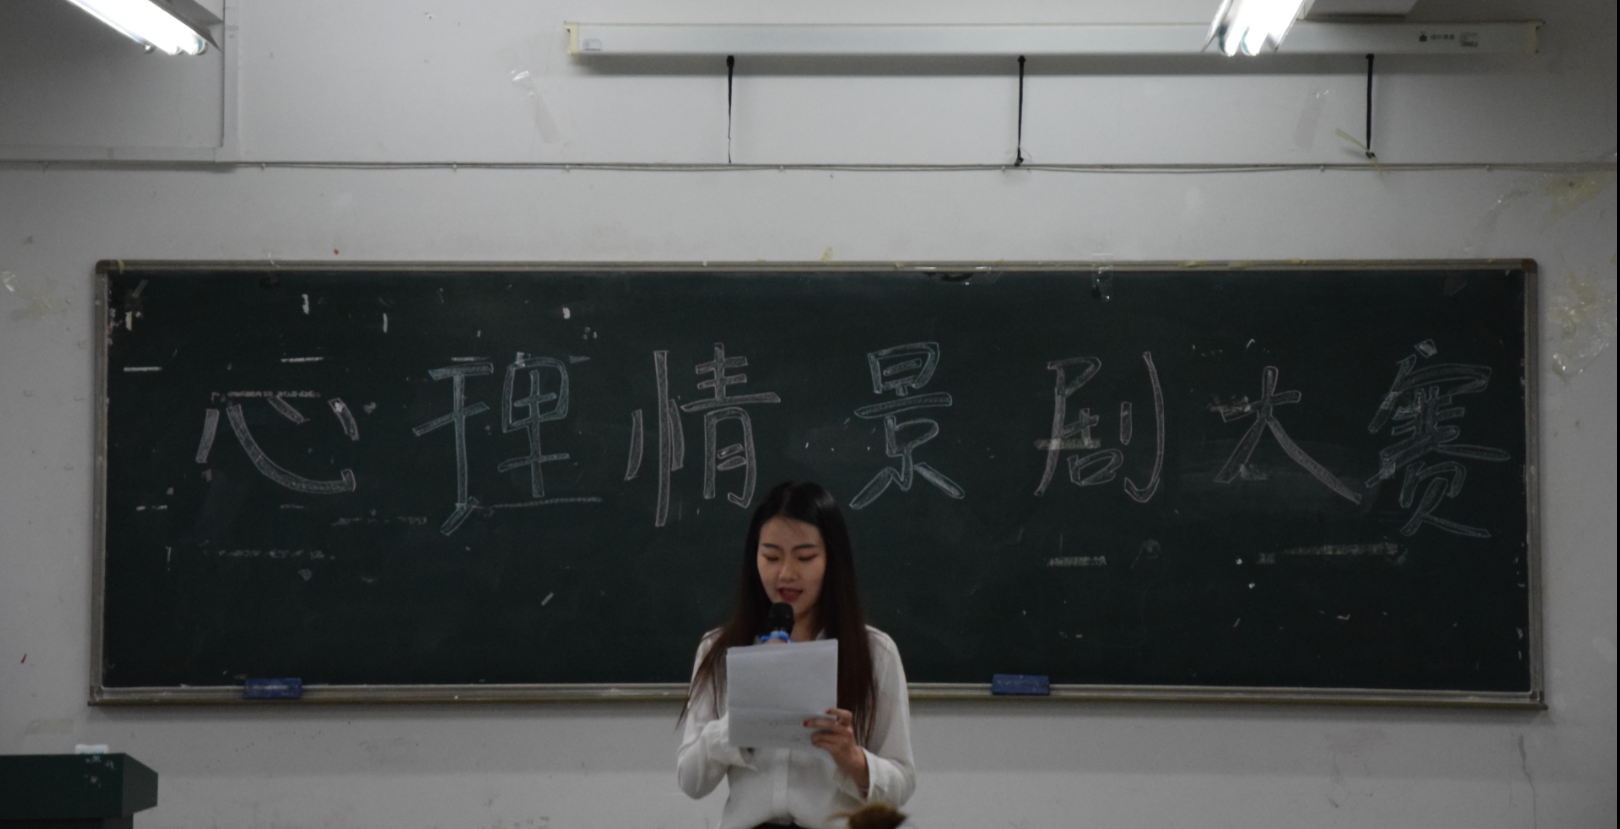 心理情景剧大赛